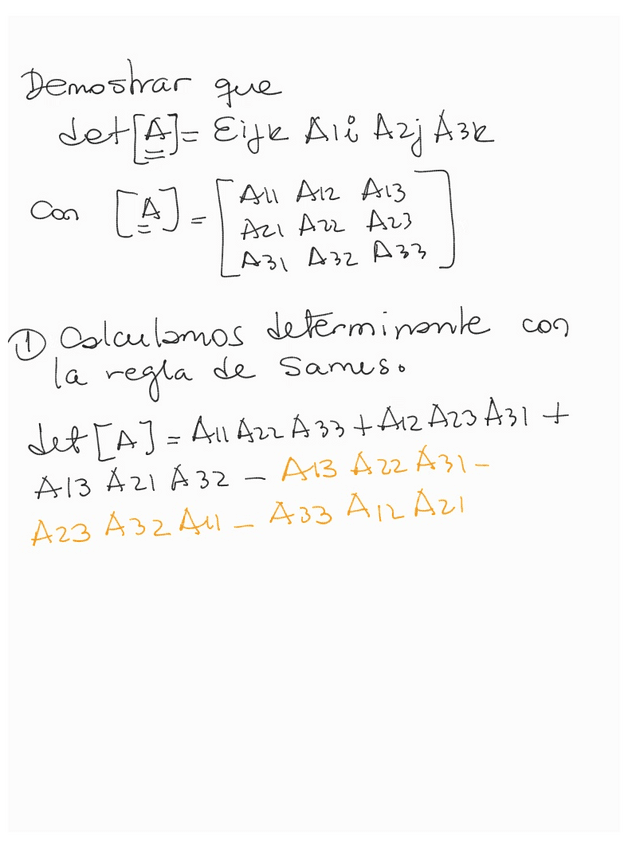 Demostrar que
det[A]= Eijk A1i A2j A3k
Con [A] = [A11 A12 A13
A21 A22 A23
A31 A32 A33]
① Calculamos determinante con
la regla de Sarrus.
det [A] = A11 A22 A33 + A12 A23 A31 +
A13 A21 A32 - A13 A22 A31 -
A23 A32 A11 - A33 A12 A21